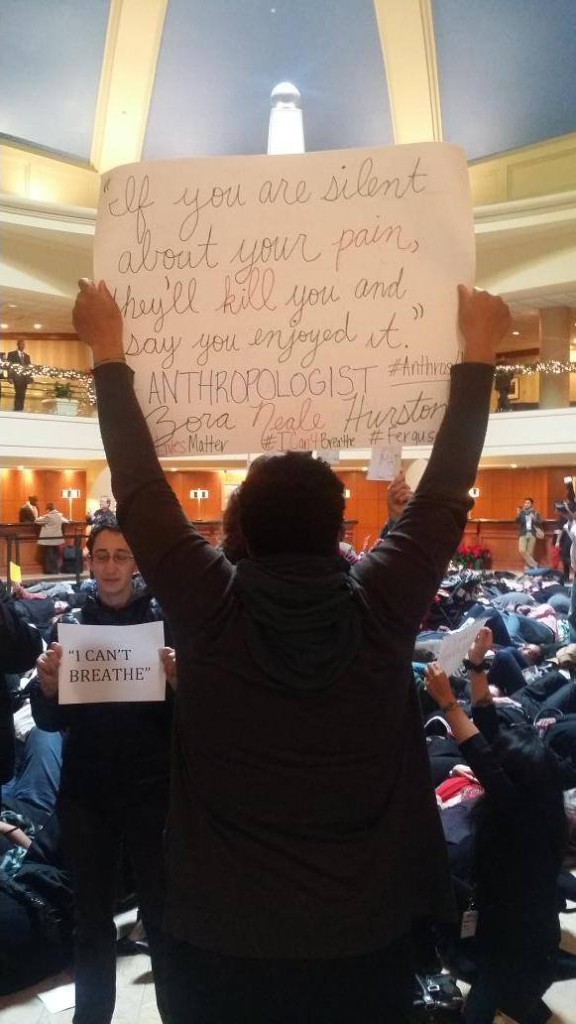 "If you are silent
about your pain,
they'll kill you and
say you enjoyed it."
ANTHROPOLOGIST #Anthros
Zora Neale Hurston
Matter #ICan'tBreathe #Fergus
"I CAN'T
BREATHE"